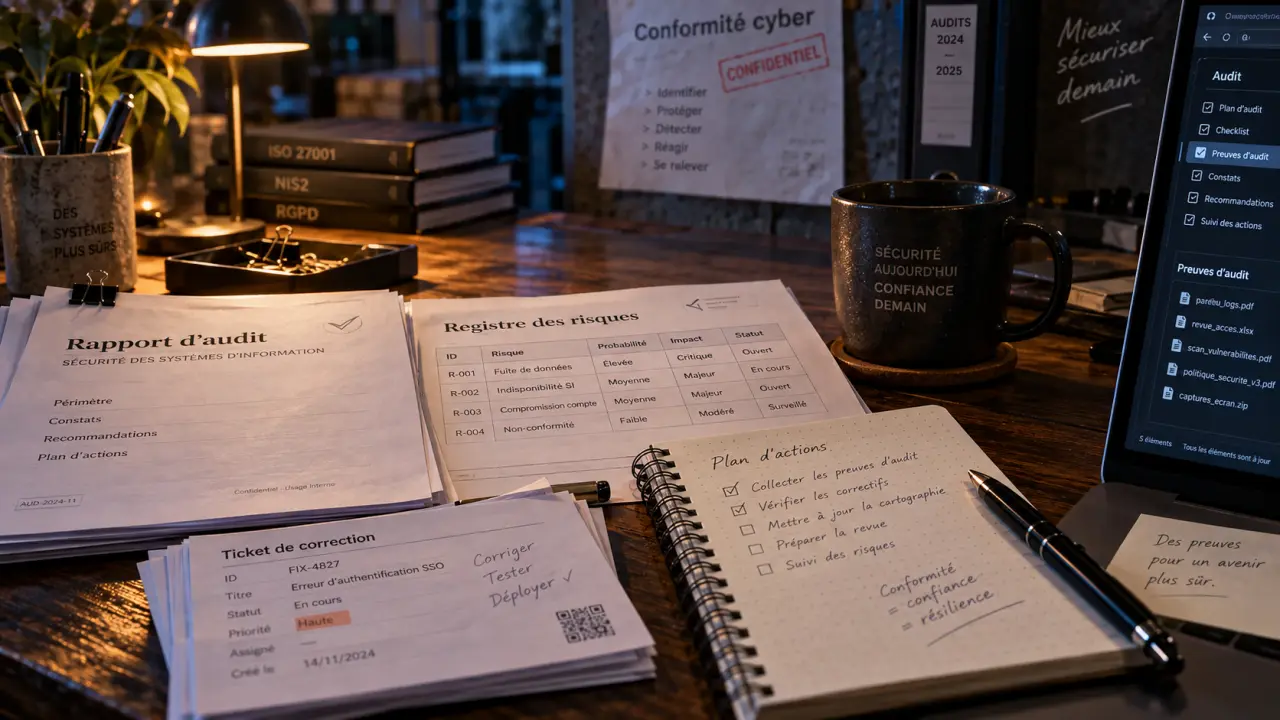 Conformité cyber
CONFIDENTIEL
> Identifier
> Protéger
> Détecter
> Réagir
> Se relever
AUDITS
2024
—
2025
Mieux
sécuriser
demain
ISO 27001
NIS2
RGPD
DES
SYSTÈMES
PLUS SÛRS
SÉCURITÉ
AUJOURD'HUI
CONFIANCE
DEMAIN
Audit
Plan d'audit
Checklist
Preuves d'audit
Constats
Recommandations
Suivi des actions
Preuves d'audit
revue_acces.xlsx
scan_vulnerabilites.pdf
politique_securite_v3.pdf
captures_ecran.zip
5 éléments
Tous les éléments sont à jour
Rapport d'audit
SÉCURITÉ DES SYSTÈMES D'INFORMATION
Périmètre
Constats
Recommandations
Plan d'actions
AUD-2024-11
Confidentiel - Usage Interne
Registre des risques
ID Risque Probabilité Impact Statut
R-001 Fuite de données Élevée Critique Ouvert
R-002 Indisponibilité SI Moyenne Majeur En cours
R-003 Compromission compte Moyenne Majeur Ouvert
R-004 Non-conformité Faible Modéré Surveillé
Ticket de correction
ID FIX-4827
Titre Erreur d'authentification SSO
Statut En cours
Priorité Haute
Assigné —
Créé le 14/11/2024
Corriger
Tester
Déployer ✓
Plan d'actions
☑ Collecter les preuves d'audit
☑ Vérifier les correctifs
☐ Mettre à jour la cartographie
☐ Préparer la revue
☐ Suivi des risques
Conformité
= confiance
= résilience
Des preuves
pour un avenir
plus sûr.